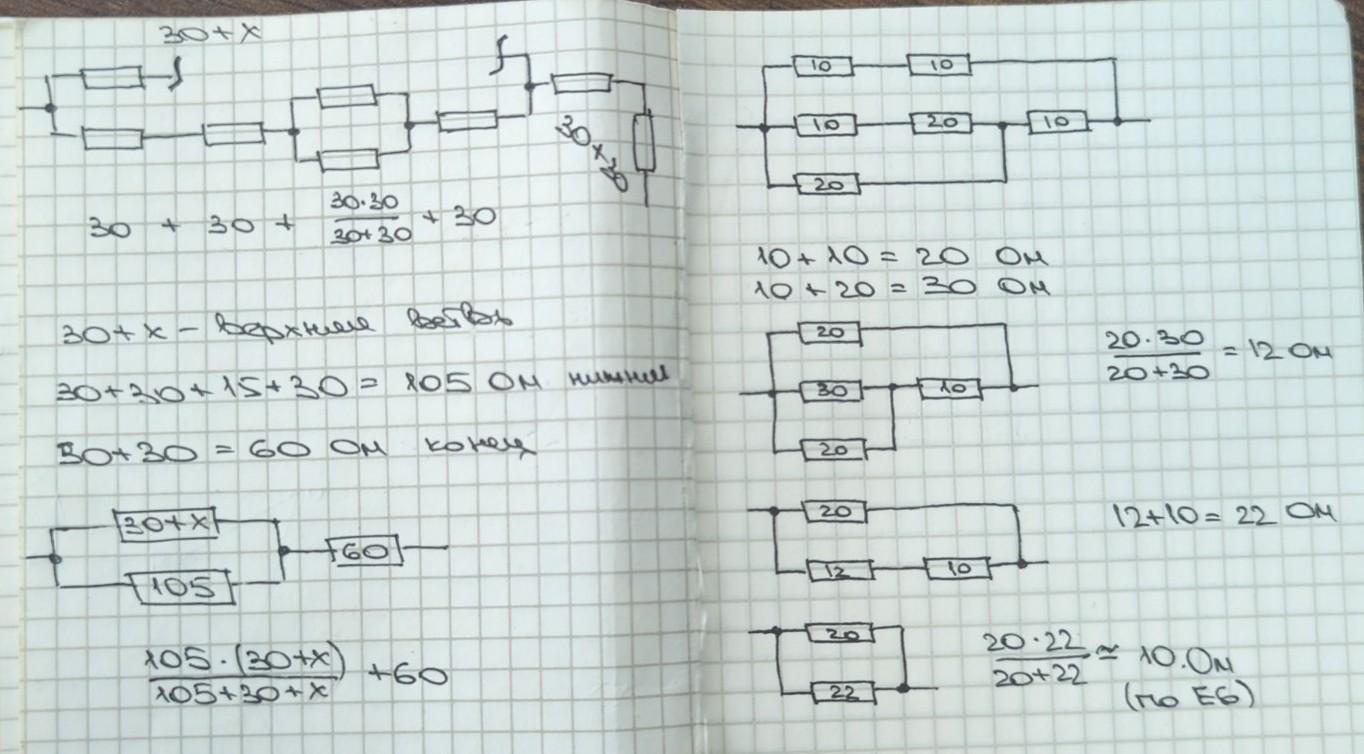 30+x
30 × 30
30 + 30 + 30·30/30+30 + 30
30+x – верхняя ветвь
30+30+15+30 = 105 Ом нижний
30+30 = 60 Ом конец
30+x
60
105
105·(30+x)/105+30+x +60
10 10
10 20 10
20
10+10 = 20 Ом
10+20 = 30 Ом
20
30 10
20
20·30/20+30 = 12 Ом
20
12 10
12+10 = 22 Ом
20
22
20·22/20+22 ≃ 10.Ом
(по Е6)